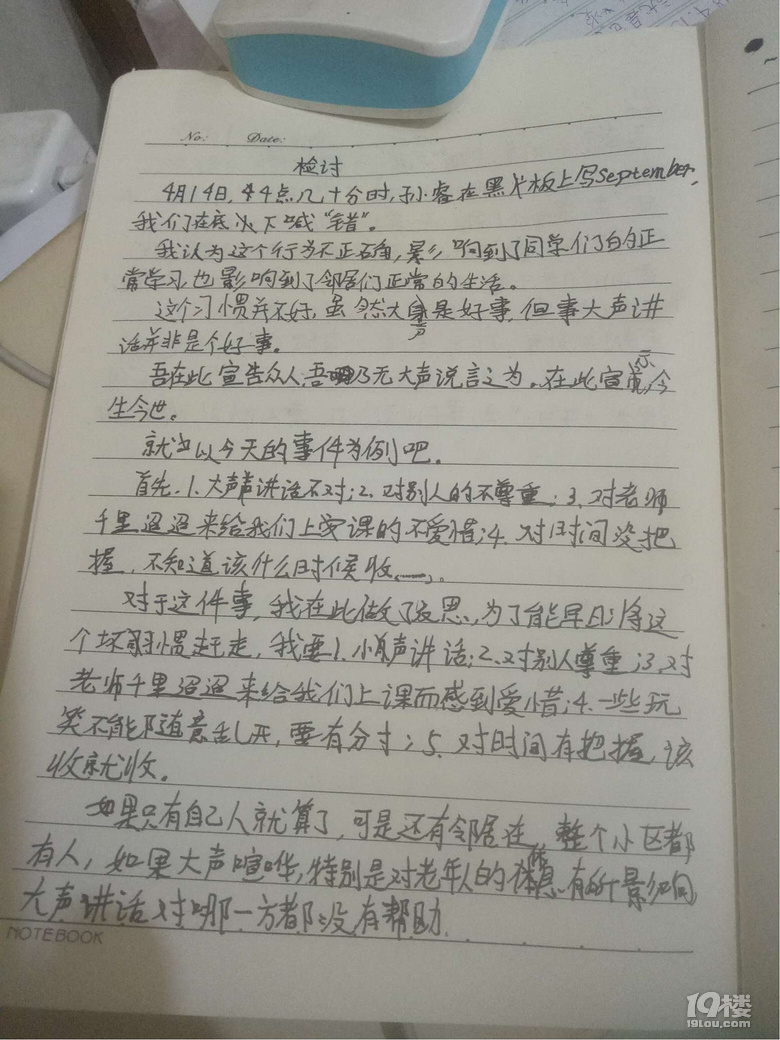 No: Date:
检讨
4月14日，4点几十分时，孙睿在黑板上写September，
我们在底下喊“错”。
我认为这个行为不正确，影响到了同学们的正
常学习，也影响到了邻居们正常的生活。
这个习惯并不好，虽然大声是好事，但事大声讲
话并非是个好事。
吾在此宣告众人，吾乃无大声说言之为。在此宣，今
生今世。
就当以今天的事件为例吧。
首先，1.大声讲话不对；2.对别人的不尊重；3.对老师
千里迢迢来给我们上课的不爱惜；4.对时间没把
握，不知道该什么时候收。
对于这件事，我在此做了反思，为了能早日将这
个坏习惯赶走，我要1.小声讲话；2.对别人尊重；3.对
老师千里迢迢来给我们上课而感到爱惜；4.一些玩
笑不能随意乱开，要有分寸；5.对时间有把握，该
收就收。
如果只有自己人就算了，可是还有邻居在，整个小区都
有人，如果大声喧哗，特别是对老年人的休息有所影响
大声讲话对哪一方都没有帮助
NOTEBOOK
19楼
19lou.com